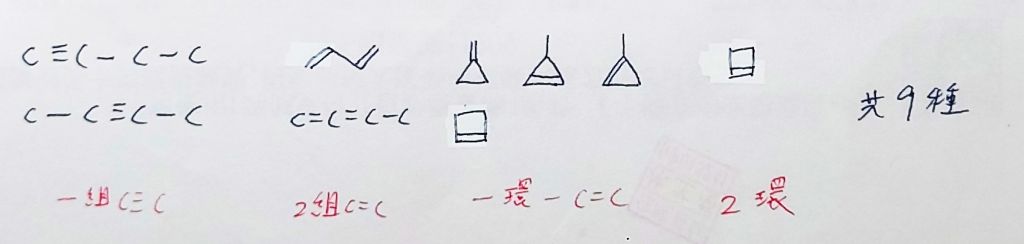 C≡C-C-C
C-C≡C-C
C=C=C-C
共9種
一組C≡C
2組C=C
一環一C=C
2環